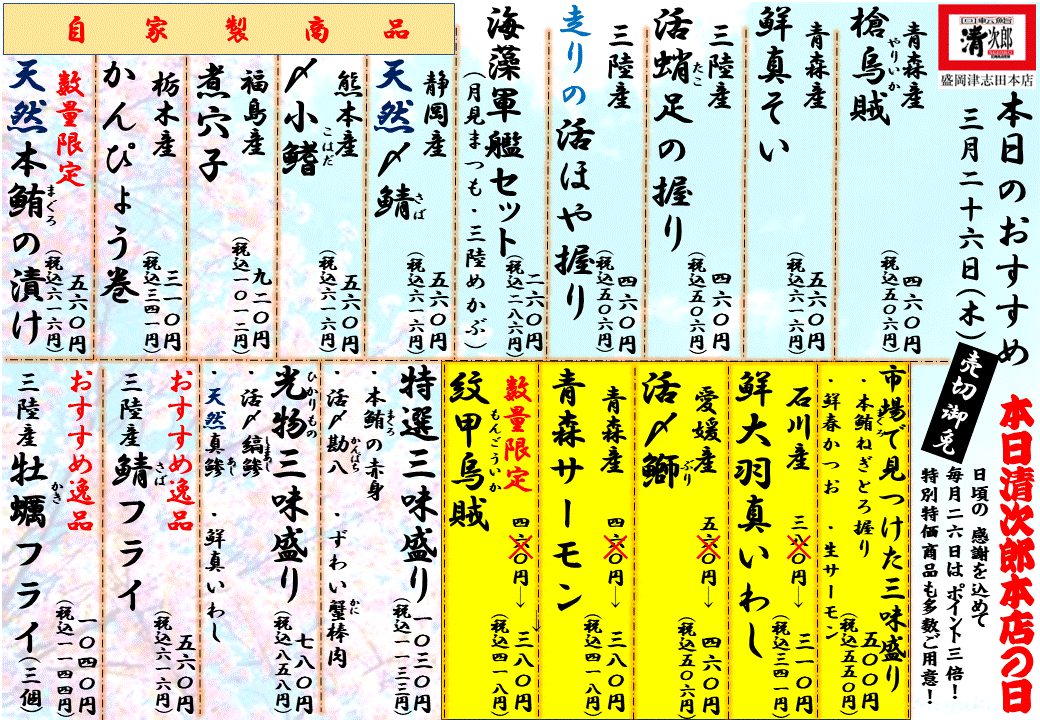 回転鮨
清次郎
盛岡津志田本店
本日のおすすめ
三月二十六日(木)
売切御免
本日清次郎本店の日
日頃の 感謝を込めて
毎月二六日は ポイント三倍!
特別特価商品も多数ご用意!
青森産
槍烏賊
やりいか
四六〇円
(税込五〇六円)
青森産
鮮真そい
五六〇円
(税込六一六円)
三陸産
活蛸足の握り
たこ
四六〇円
(税込五〇六円)
三陸産
走りの活ほや握り
四六〇円
(税込五〇六円)
海藻軍艦セット
(月見まつも・三陸めかぶ)
二六〇円
(税込二八六円)
自家製商品
静岡産
天然〆鯖
さば
五六〇円
(税込六一六円)
熊本産
〆小鰭
こはだ
五六〇円
(税込六一六円)
福島産
煮穴子
九二〇円
(税込一〇一二円)
栃木産
かんぴょう巻
三一〇円
(税込三四一円)
数量限定
天然本鮪の漬け
まぐろ
五六〇円
(税込六一六円)
市場で見つけた三味盛り
・本鮪ねぎとろ握り
まぐろ
・鮮春かつお ・生サーモン
五〇〇円
(税込五五〇円)
石川産
鮮大羽真いわし
三八〇円→
三一〇円
(税込三四一円)
愛媛産
活〆鰤
ぶり
五六〇円→
四六〇円
(税込五〇六円)
青森産
青森サーモン
四六〇円→
三八〇円
(税込四一八円)
数量限定
紋甲烏賊
もんごういか
四六〇円→
三八〇円
(税込四一八円)
特選三味盛り
・本鮪の赤身
まぐろ
・活〆勘八 ・ずわい蟹棒肉
かんぱち
かに
一〇三〇円
(税込一一三三円)
光物三味盛り
ひかりもの
・活〆縞鯵
しまあじ
・天然真鯵 ・鮮真いわし
あじ
七八〇円
(税込八五八円)
おすすめ逸品
三陸産鯖フライ
さば
五六〇円
(税込六一六円)
おすすめ逸品
三陸産牡蠣フライ(三個)
かき
一〇四〇円
(税込一一四四円)